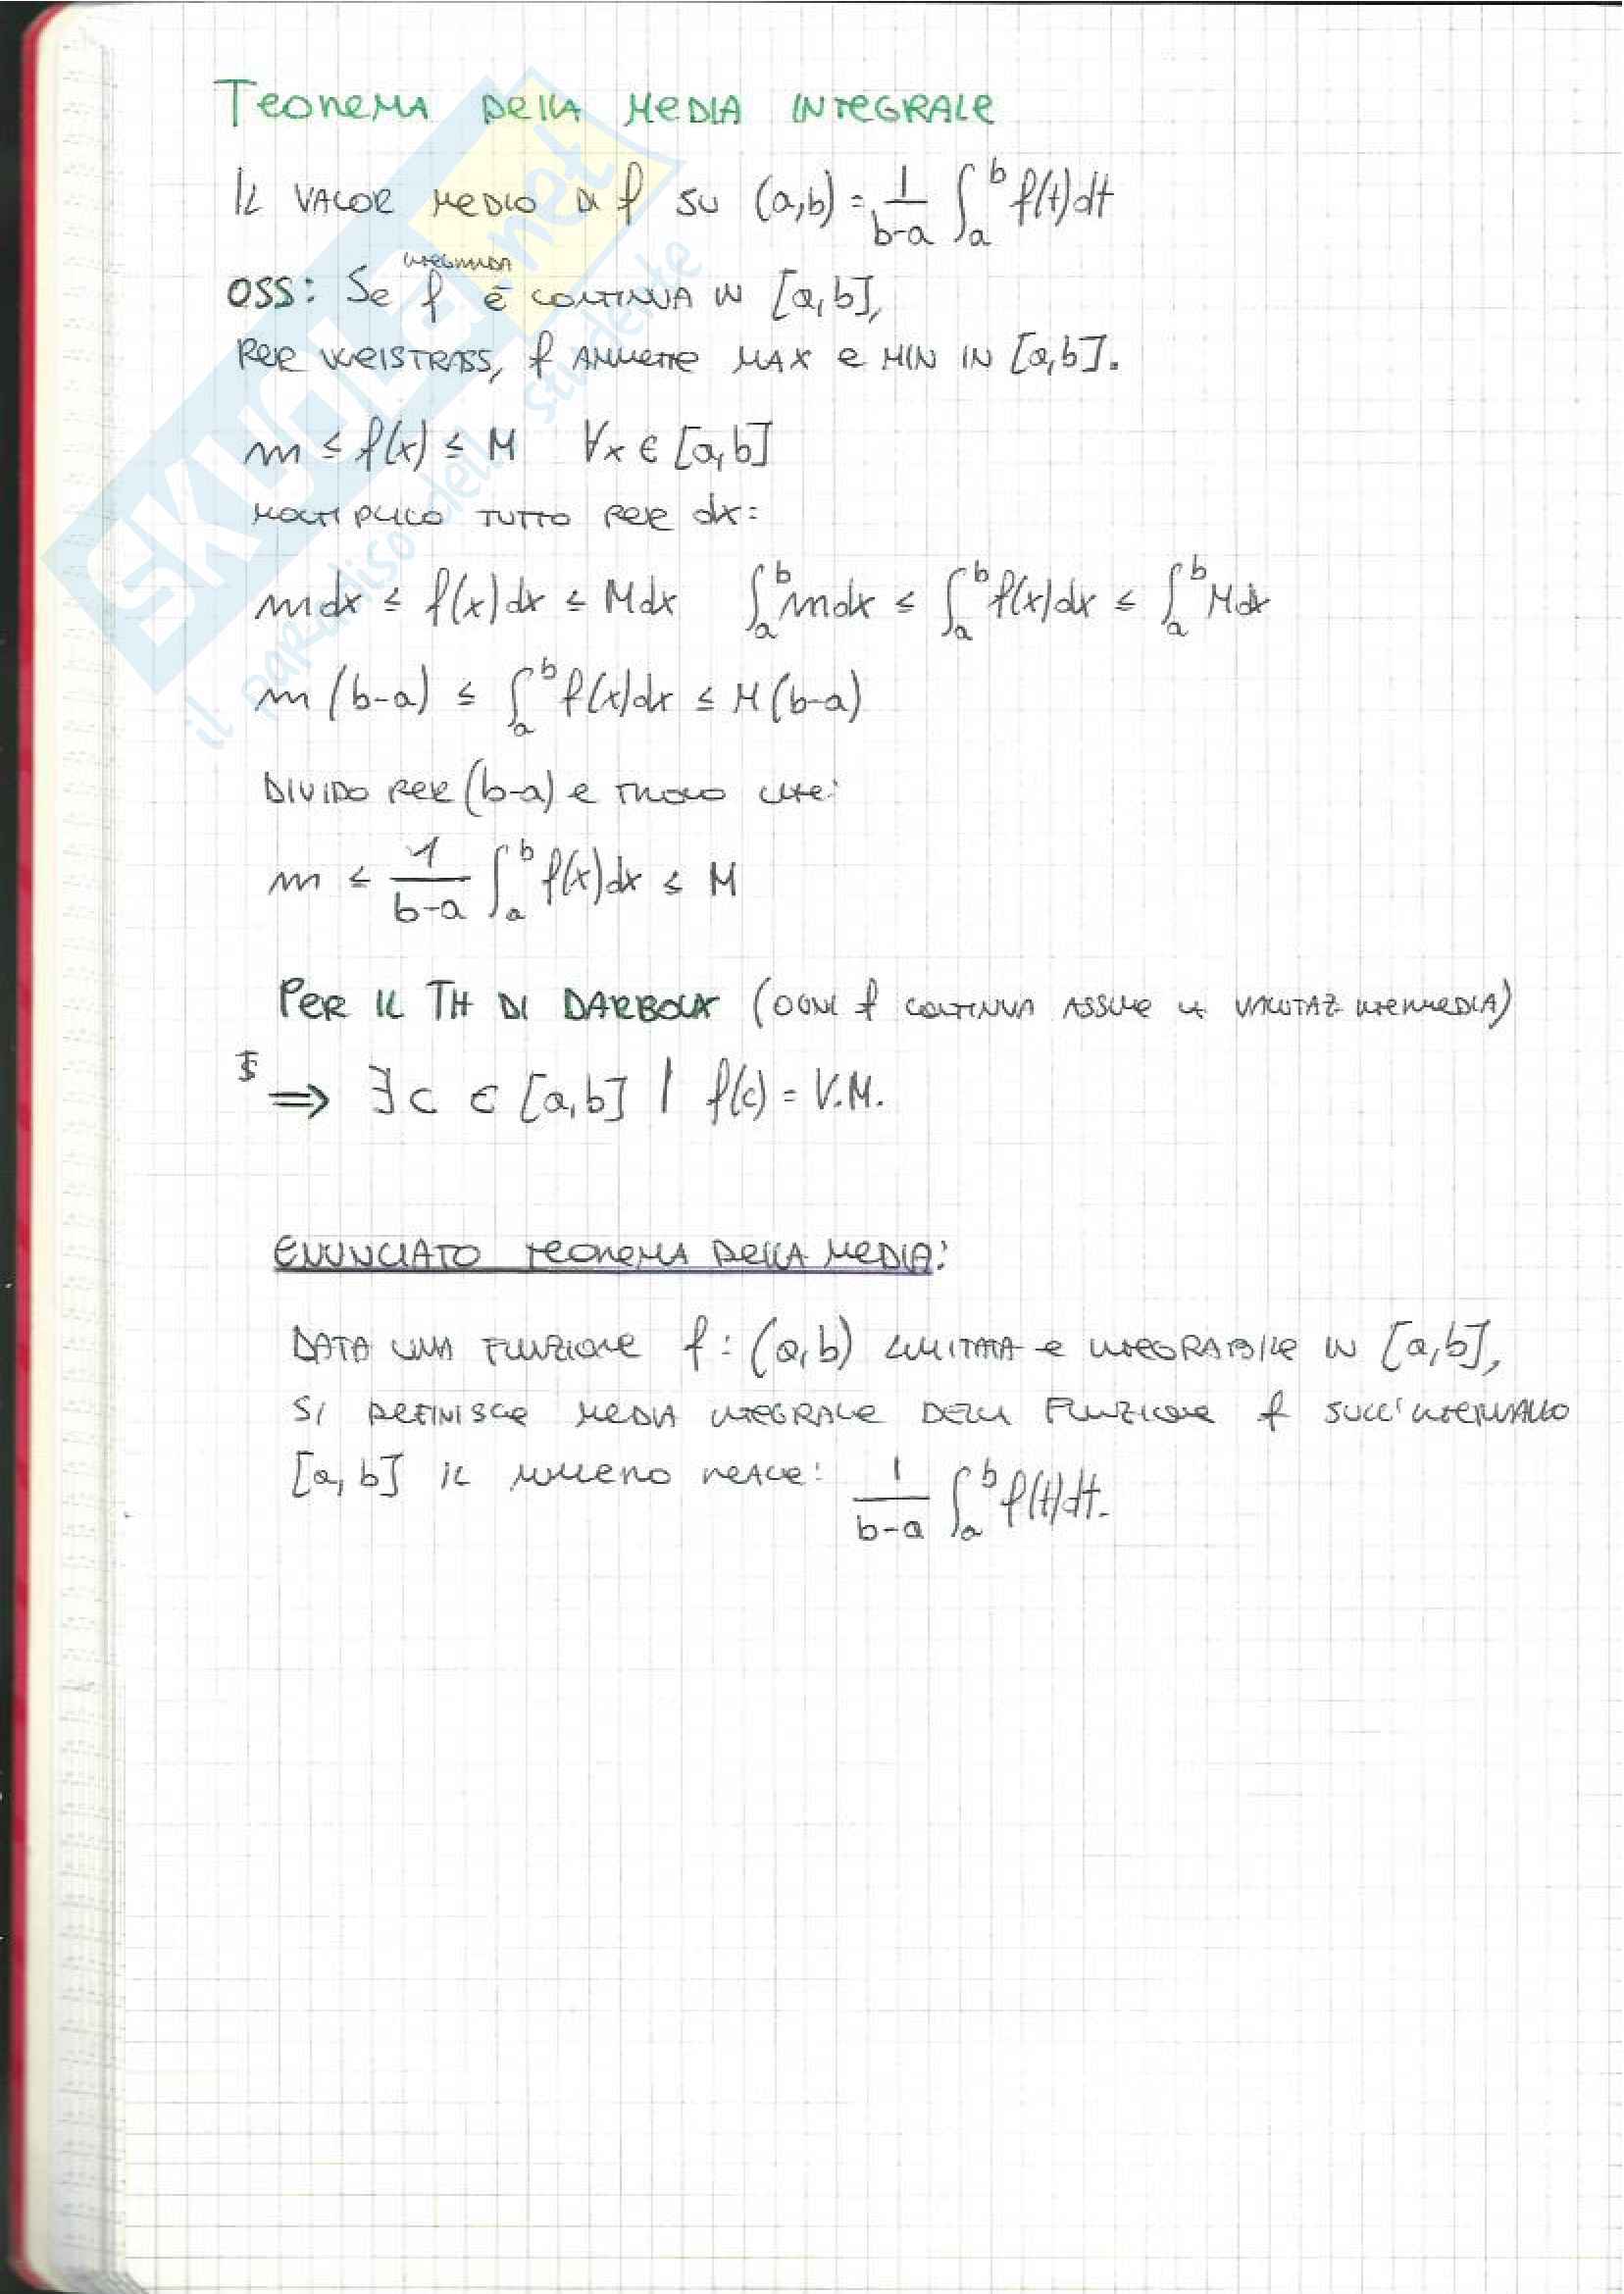 TEOREMA DELLA MEDIA INTEGRALE
IL VALOR MEDIO DI f SU (a,b) = 1/(b-a) ∫_a^b f(t)dt
OSS: Se f è CONTINUA IN [a,b],
PER WEISTRASS, f AMMETTE MAX e MIN IN [a,b].
m ≤ f(x) ≤ M ∀x ∈ [a,b]
MOLTIPLICO TUTTO PER dx:
mdx ≤ f(x)dx ≤ Mdx ∫_a^b mdx ≤ ∫_a^b f(x)dx ≤ ∫_a^b Mdx
m (b-a) ≤ ∫_a^b f(x)dx ≤ M (b-a)
DIVIDO PER (b-a) e TROVO CHE:
m ≤ 1/(b-a) ∫_a^b f(x)dx ≤ M
PER IL TH DI DARBOUX (OGNI f CONTINUA ASSUME VALUTAZ INTERMEDIA)
⇒ ∃c ∈ [a,b] | f(c) = V.M.
ENUNCIATO TEOREMA DELLA MEDIA:
DATA UNA FUNZIONE f: (a,b) LIMITATA e INTEGRABILE IN [a,b],
SI DEFINISCE MEDIA INTEGRALE DELLA FUNZIONE f SULL'INTERVALLO
[a,b] IL NUMERO REALE: 1/(b-a) ∫_a^b f(t)dt.
SKUOLA.net
il paradiso dello studente